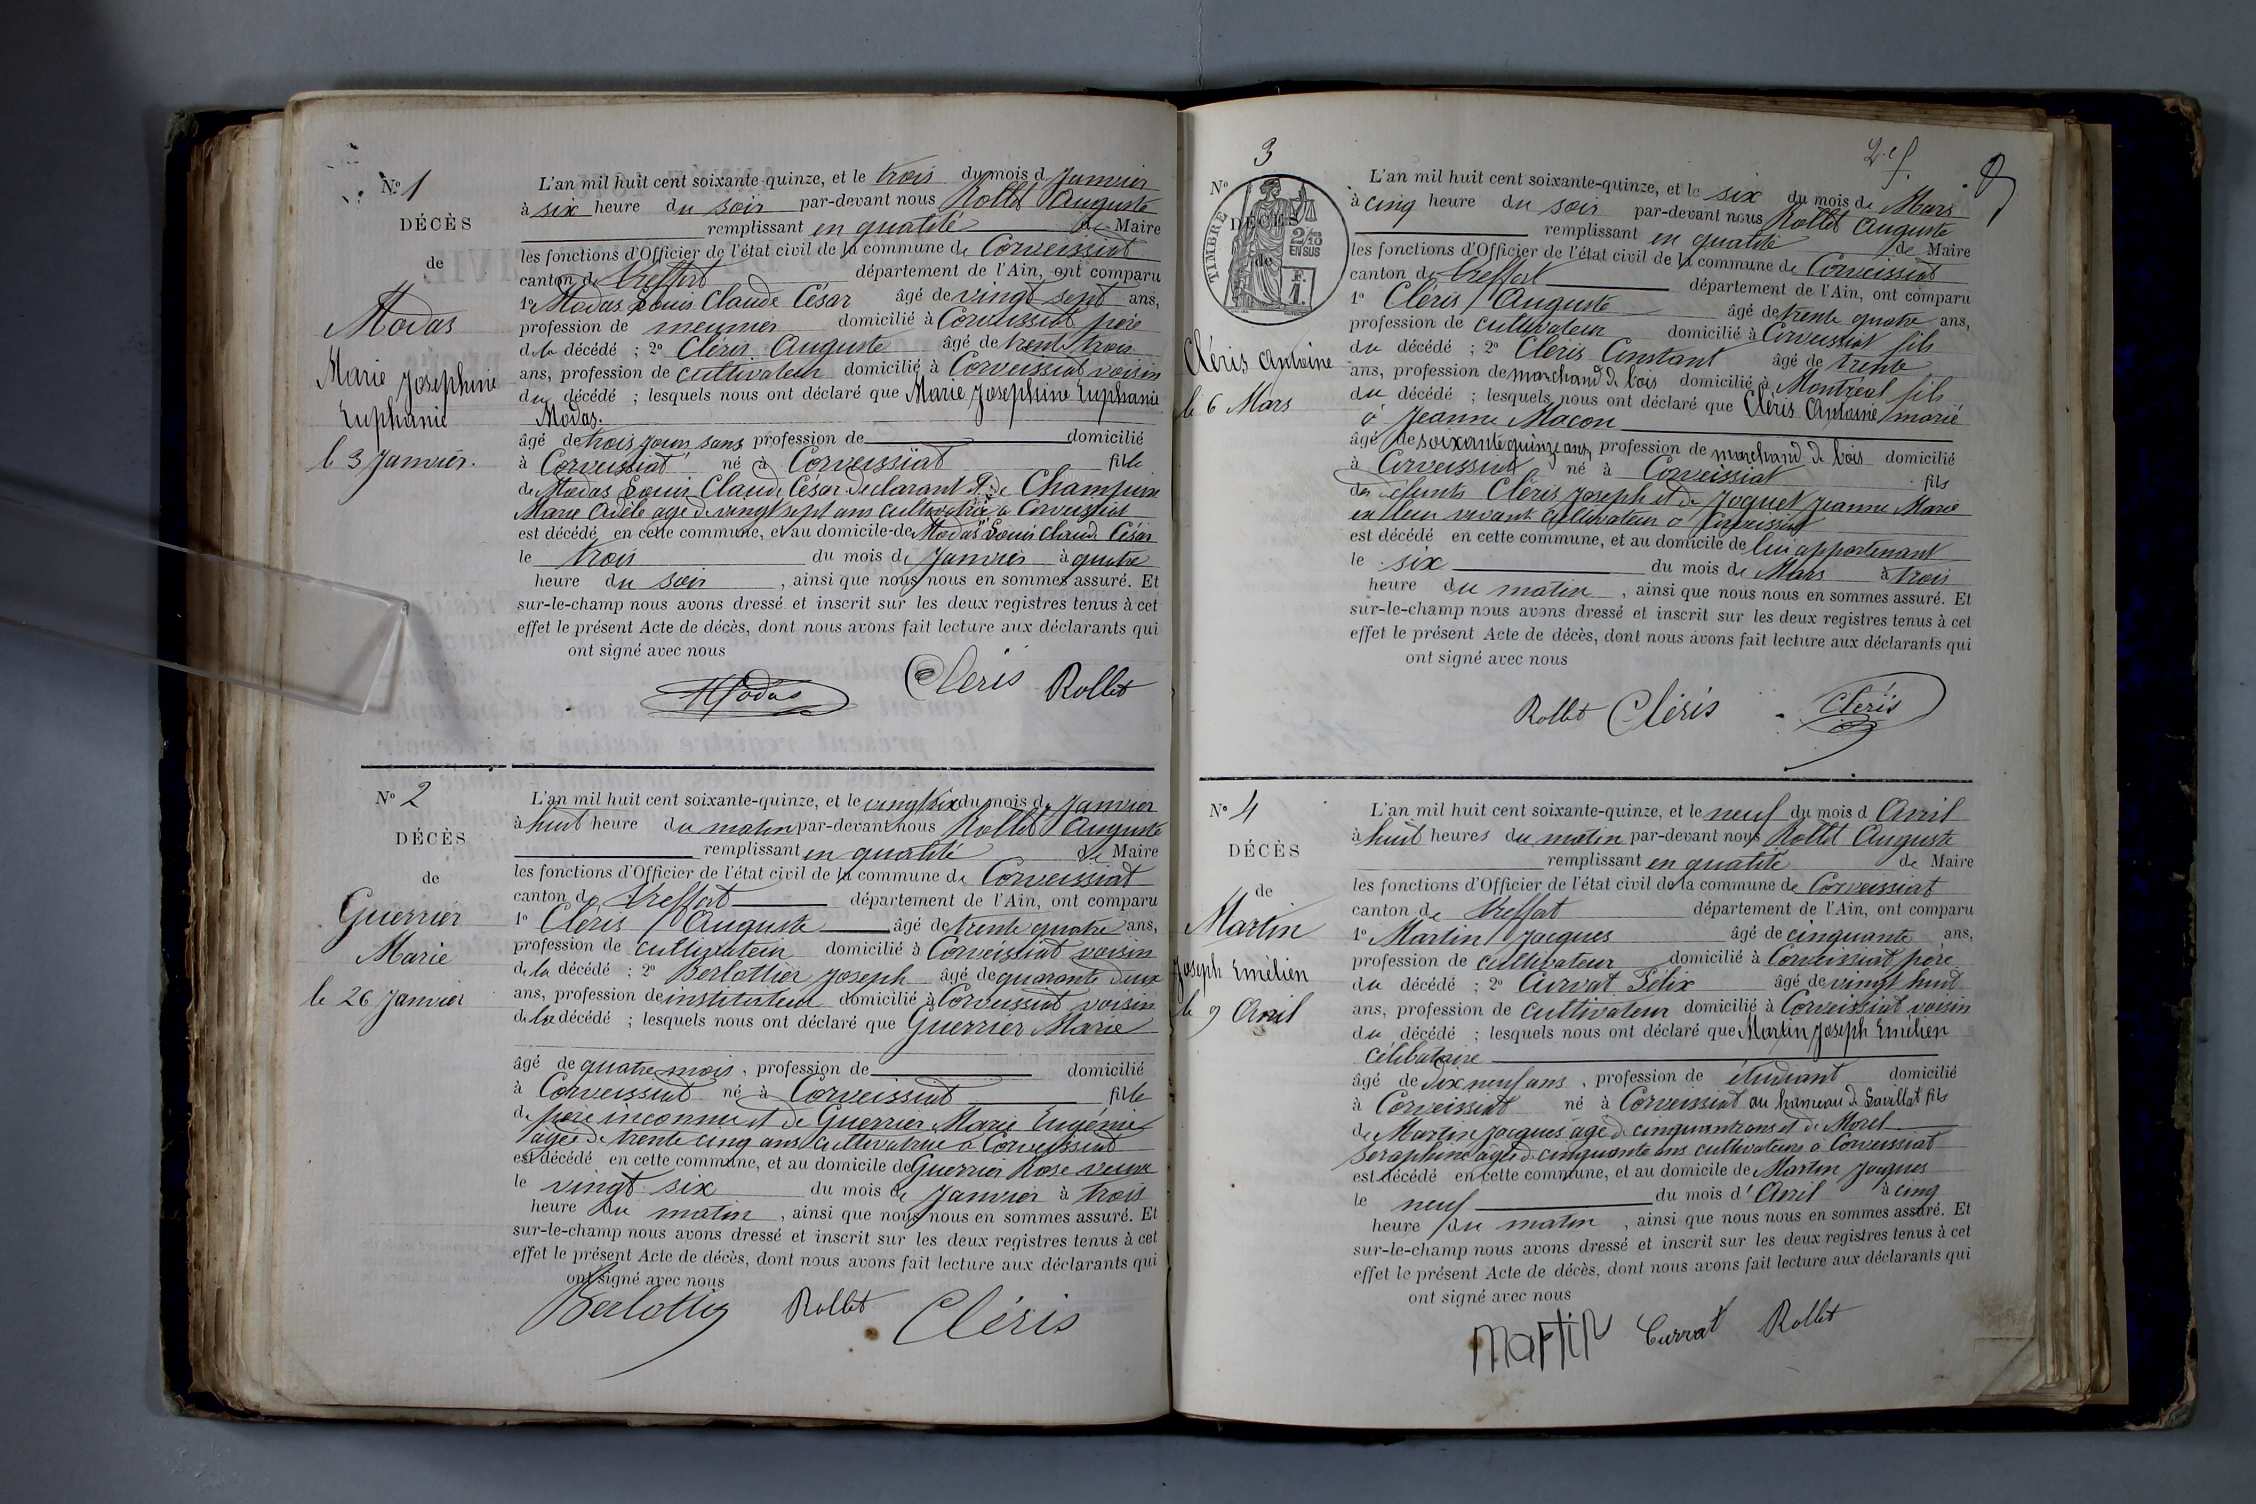 N° 1
DÉCÈS
de
Modas
Marie Josephine
Euphanie
le 3 Janvier.
L'an mil huit cent soixante-quinze, et le trois du mois d Janvier
à six heure du soir par-devant nous Rollet Auguste
remplissant en qualité de Maire
les fonctions d'Officier de l'état civil de la commune de Corveissiat
canton de Treffort département de l'Ain, ont comparu
1° Modas Louis Claude César âgé de vingt sept ans,
profession de meunier domicilié à Corveissiat père
de la décédé ; 2° Cléris Auguste âgé de trente trois
ans, profession de cultivateur domicilié à Corveissiat voisin
du décédé ; lesquels nous ont déclaré que Marie Josephine Euphanie
Modas.
âgé de trois jours sans profession de domicilié
à Corveissiat né à Corveissiat fille
de Modas Louis Claude César declarant et de Champion
Marie Adèle agé de vingt sept ans cultivatrice à Corveissiat
est décédé en cette commune, et au domicile de Modas Louis Claude César
le trois du mois de Janvier à quatre
heure du soir , ainsi que nous nous en sommes assuré. Et
sur-le-champ nous avons dressé et inscrit sur les deux registres tenus à cet
effet le présent Acte de décès, dont nous avons fait lecture aux déclarants qui
ont signé avec nous
Modas Cléris Rollet
N° 2
DÉCÈS
de
Guerrier
Marie
le 26 Janvier
L'an mil huit cent soixante-quinze, et le vingt six du mois de Janvier
à huit heure du matin par-devant nous Rollet Auguste
remplissant en qualité de Maire
les fonctions d'Officier de l'état civil de la commune de Corveissiat
canton de Treffort département de l'Ain, ont comparu
1° Cléris Auguste âgé de trente quatre ans,
profession de cultivateur domicilié à Corveissiat voisin
de la décédé ; 2° Berlottier Joseph âgé de quarante deux
ans, profession de instituteur domicilié à Corveissiat voisin
de la décédé ; lesquels nous ont déclaré que Guerrier Marie
âgé de quatre mois , profession de domicilié
à Corveissiat né à Corveissiat fille
de père inconnu et de Guerrier Marie Eugénie
agée de trente cinq ans cultivatrice à Corveissiat
est décédé en cette commune, et au domicile de Guerrier Rose veuve
le vingt six du mois de Janvier à trois
heure du matin , ainsi que nous nous en sommes assuré. Et
sur-le-champ nous avons dressé et inscrit sur les deux registres tenus à cet
effet le présent Acte de décès, dont nous avons fait lecture aux déclarants qui
ont signé avec nous
Rollet Cléris
2e f.
N° 3
DÉCÈS
de
TIMBRE
2/10
EN SUS
F.
1.
Cléris Antoine
le 6 Mars
L'an mil huit cent soixante-quinze, et le six du mois de Mars
à cinq heure du soir par-devant nous Rollet Auguste
remplissant en qualité de Maire
les fonctions d'Officier de l'état civil de la commune de Corveissiat
canton de Treffort département de l'Ain, ont comparu
1° Cléris Auguste âgé de trente quatre ans,
profession de cultivateur domicilié à Corveissiat fils
du décédé ; 2° Cléris Constant âgé de trente
ans, profession de marchand de bois domicilié à Montreal fils
du décédé ; lesquels nous ont déclaré que Cléris Antoine marié
à Jeanne Macon
âgé de soixante quinze ans, profession de marchand de bois domicilié
à Corveissiat né à Corveissiat fils
des défunts Cléris Joseph et de Joquet Jeanne Marie
en leur vivant cultivateur à Corveissiat
est décédé en cette commune, et au domicile de lui appartenant
le six du mois de Mars à trois
heure du matin , ainsi que nous nous en sommes assuré. Et
sur-le-champ nous avons dressé et inscrit sur les deux registres tenus à cet
effet le présent Acte de décès, dont nous avons fait lecture aux déclarants qui
ont signé avec nous
Rollet Cléris Cléris
N° 4
DÉCÈS
de
Martin
Joseph Emélien
le 9 Avril
L'an mil huit cent soixante-quinze, et le neuf du mois d Avril
à huit heures du matin par-devant nous Rollet Auguste
remplissant en qualité de Maire
les fonctions d'Officier de l'état civil de la commune de Corveissiat
canton de Treffort département de l'Ain, ont comparu
1° Martin Jacques âgé de cinquante ans,
profession de cultivateur domicilié à Corveissiat père
du décédé ; 2° Curvat Félix âgé de vingt huit
ans, profession de cultivateur domicilié à Corveissiat voisin
du décédé ; lesquels nous ont déclaré que Martin Joseph Emélien
célibataire
âgé de dix neuf ans , profession de étudiant domicilié
à Corveissiat né à Corveissiat au hameau de Savillat fils
de Martin Jacques agé de cinquante ans et de Morel
Seraphine agée de cinquante ans cultivateurs à Corveissiat
est décédé en cette commune, et au domicile de Martin Jacques
le neuf du mois d'Avril à cinq
heure du matin , ainsi que nous nous en sommes assuré. Et
sur-le-champ nous avons dressé et inscrit sur les deux registres tenus à cet
effet le présent Acte de décès, dont nous avons fait lecture aux déclarants qui
ont signé avec nous
Martin Curvat Rollet